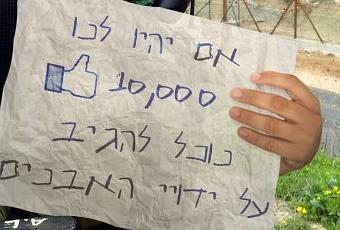 אם יהיו לנו
10,000
נוכל להגיב
על ידויי האבנים